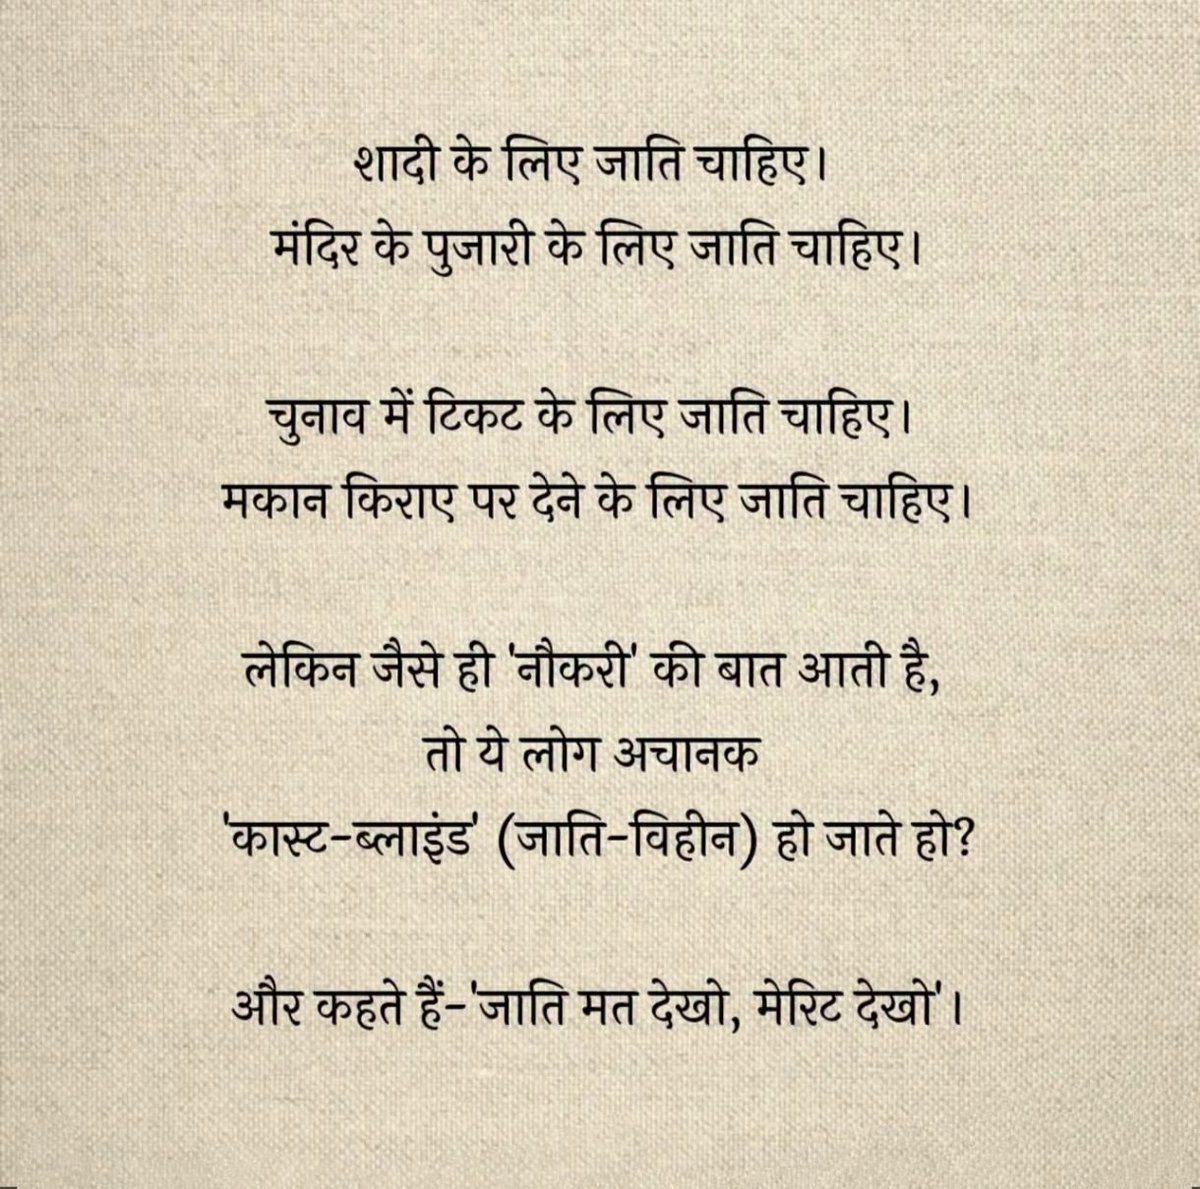 शादी के लिए जाति चाहिए।
मंदिर के पुजारी के लिए जाति चाहिए।
चुनाव में टिकट के लिए जाति चाहिए।
मकान किराए पर देने के लिए जाति चाहिए।
लेकिन जैसे ही 'नौकरी' की बात आती है,
तो ये लोग अचानक
'कास्ट-ब्लाइंड' (जाति-विहीन) हो जाते हो?
और कहते हैं-'जाति मत देखो, मेरिट देखो'।